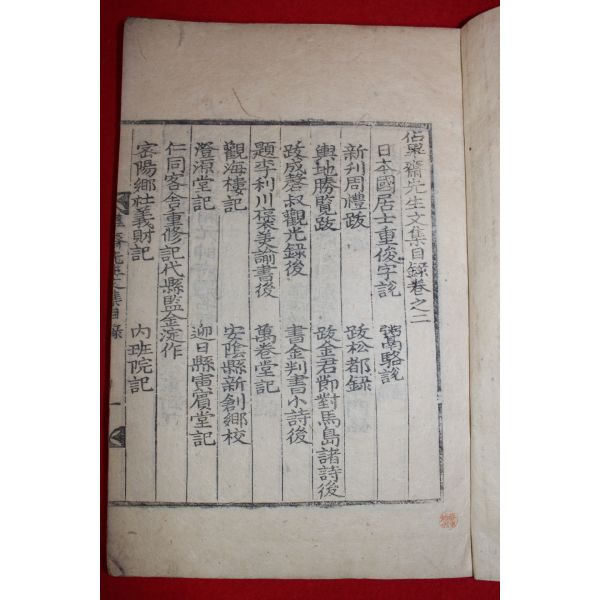 佔畢齋先生文集目錄卷之二
日本國居士重俊字說 鬻駱說
新刊周禮跋 跋松都錄
輿地勝覽跋 跋金君節對馬島諸詩後
跋成磬叔觀光錄後 書金判書小詩後
題李利川褒美諭書後 萬卷堂記
觀海樓記 安陰縣新創鄉校
澄源堂記 迎日縣寅賓堂記
仁同客舍重修記代縣監金淀作
密陽鄉社義財記 內班院記
畢齋先生文集目錄 一